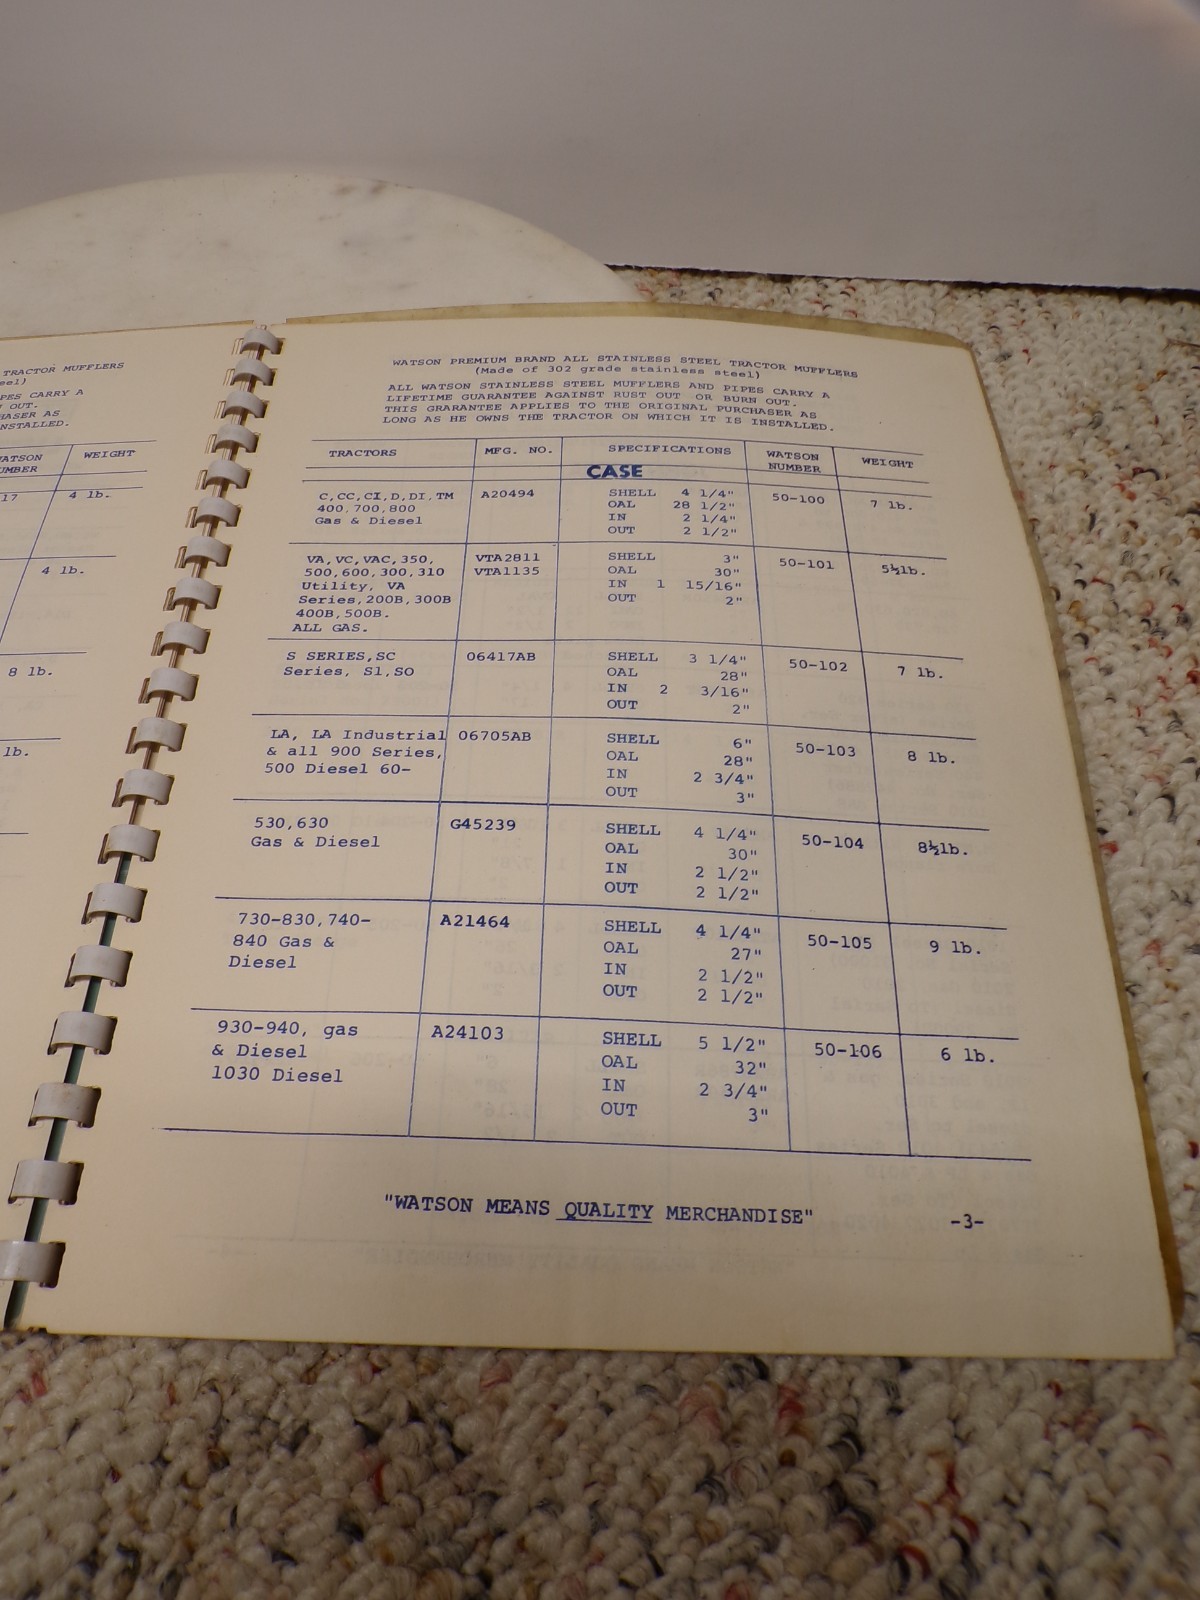 TRACTOR MUFFLERS
eel)
PES CARRY A
OUT.
HASER AS
NSTALLED.
WATSON
NUMBER
WEIGHT
17
4 lb.
4 lb.
8 lb.
lb.
WATSON PREMIUM BRAND ALL STAINLESS STEEL TRACTOR MUFFLERS
(Made of 302 grade stainless steel)
ALL WATSON STAINLESS STEEL MUFFLERS AND PIPES CARRY A
LIFETIME GUARANTEE AGAINST RUST OUT OR BURN OUT.
THIS GRARANTEE APPLIES TO THE ORIGINAL PURCHASER AS
LONG AS HE OWNS THE TRACTOR ON WHICH IT IS INSTALLED.
TRACTORS MFG. NO. SPECIFICATIONS WATSON NUMBER WEIGHT
CASE
C,CC,CI,D,DI,TM A20494 SHELL 4 1/4" 50-100 7 lb.
400,700,800 OAL 28 1/2"
Gas & Diesel IN 2 1/4"
OUT 2 1/2"
VA,VC,VAC,350, VTA2811 SHELL 3" 50-101 5½lb.
500,600,300,310 VTA1135 OAL 30"
Utility, VA IN 1 15/16"
Series,200B,300B OUT 2"
400B,500B.
ALL GAS.
S SERIES,SC 06417AB SHELL 3 1/4" 50-102 7 lb.
Series, S1,SO OAL 28"
IN 2 3/16"
OUT 2"
LA, LA Industrial 06705AB SHELL 6" 50-103 8 lb.
& all 900 Series, OAL 28"
500 Diesel 60- IN 2 3/4"
OUT 3"
530,630 G45239 SHELL 4 1/4" 50-104 8½lb.
Gas & Diesel OAL 30"
IN 2 1/2"
OUT 2 1/2"
730-830,740- A21464 SHELL 4 1/4" 50-105 9 lb.
840 Gas & OAL 27"
Diesel IN 2 1/2"
OUT 2 1/2"
930-940, gas A24103 SHELL 5 1/2" 50-106 6 lb.
& Diesel OAL 32"
1030 Diesel IN 2 3/4"
OUT 3"
"WATSON MEANS QUALITY MERCHANDISE" -3-